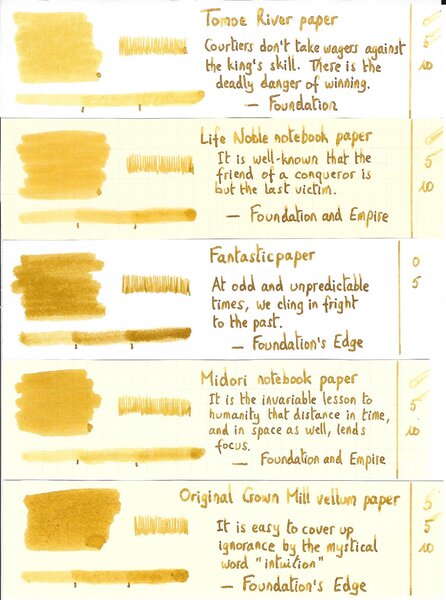 Tomoe River paper
Courtiers don't take wagers against
the king's skill. There is the
deadly danger of winning.
— Foundation
5
10
Life Noble notebook paper
It is well-known that the
friend of a conqueror is
but the last victim.
— Foundation and Empire
5
10
Fantasticpaper
At odd and unpredictable
times, we cling in fright
to the past.
— Foundation's Edge
0
5
Midori notebook paper
It is the invariable lesson to
humanity that distance in time,
and in space as well, lends
focus.
— Foundation and Empire
5
10
Original Crown Mill vellum paper
It is easy to cover up
ignorance by the mystical
word "intuition"
— Foundation's Edge
5
10